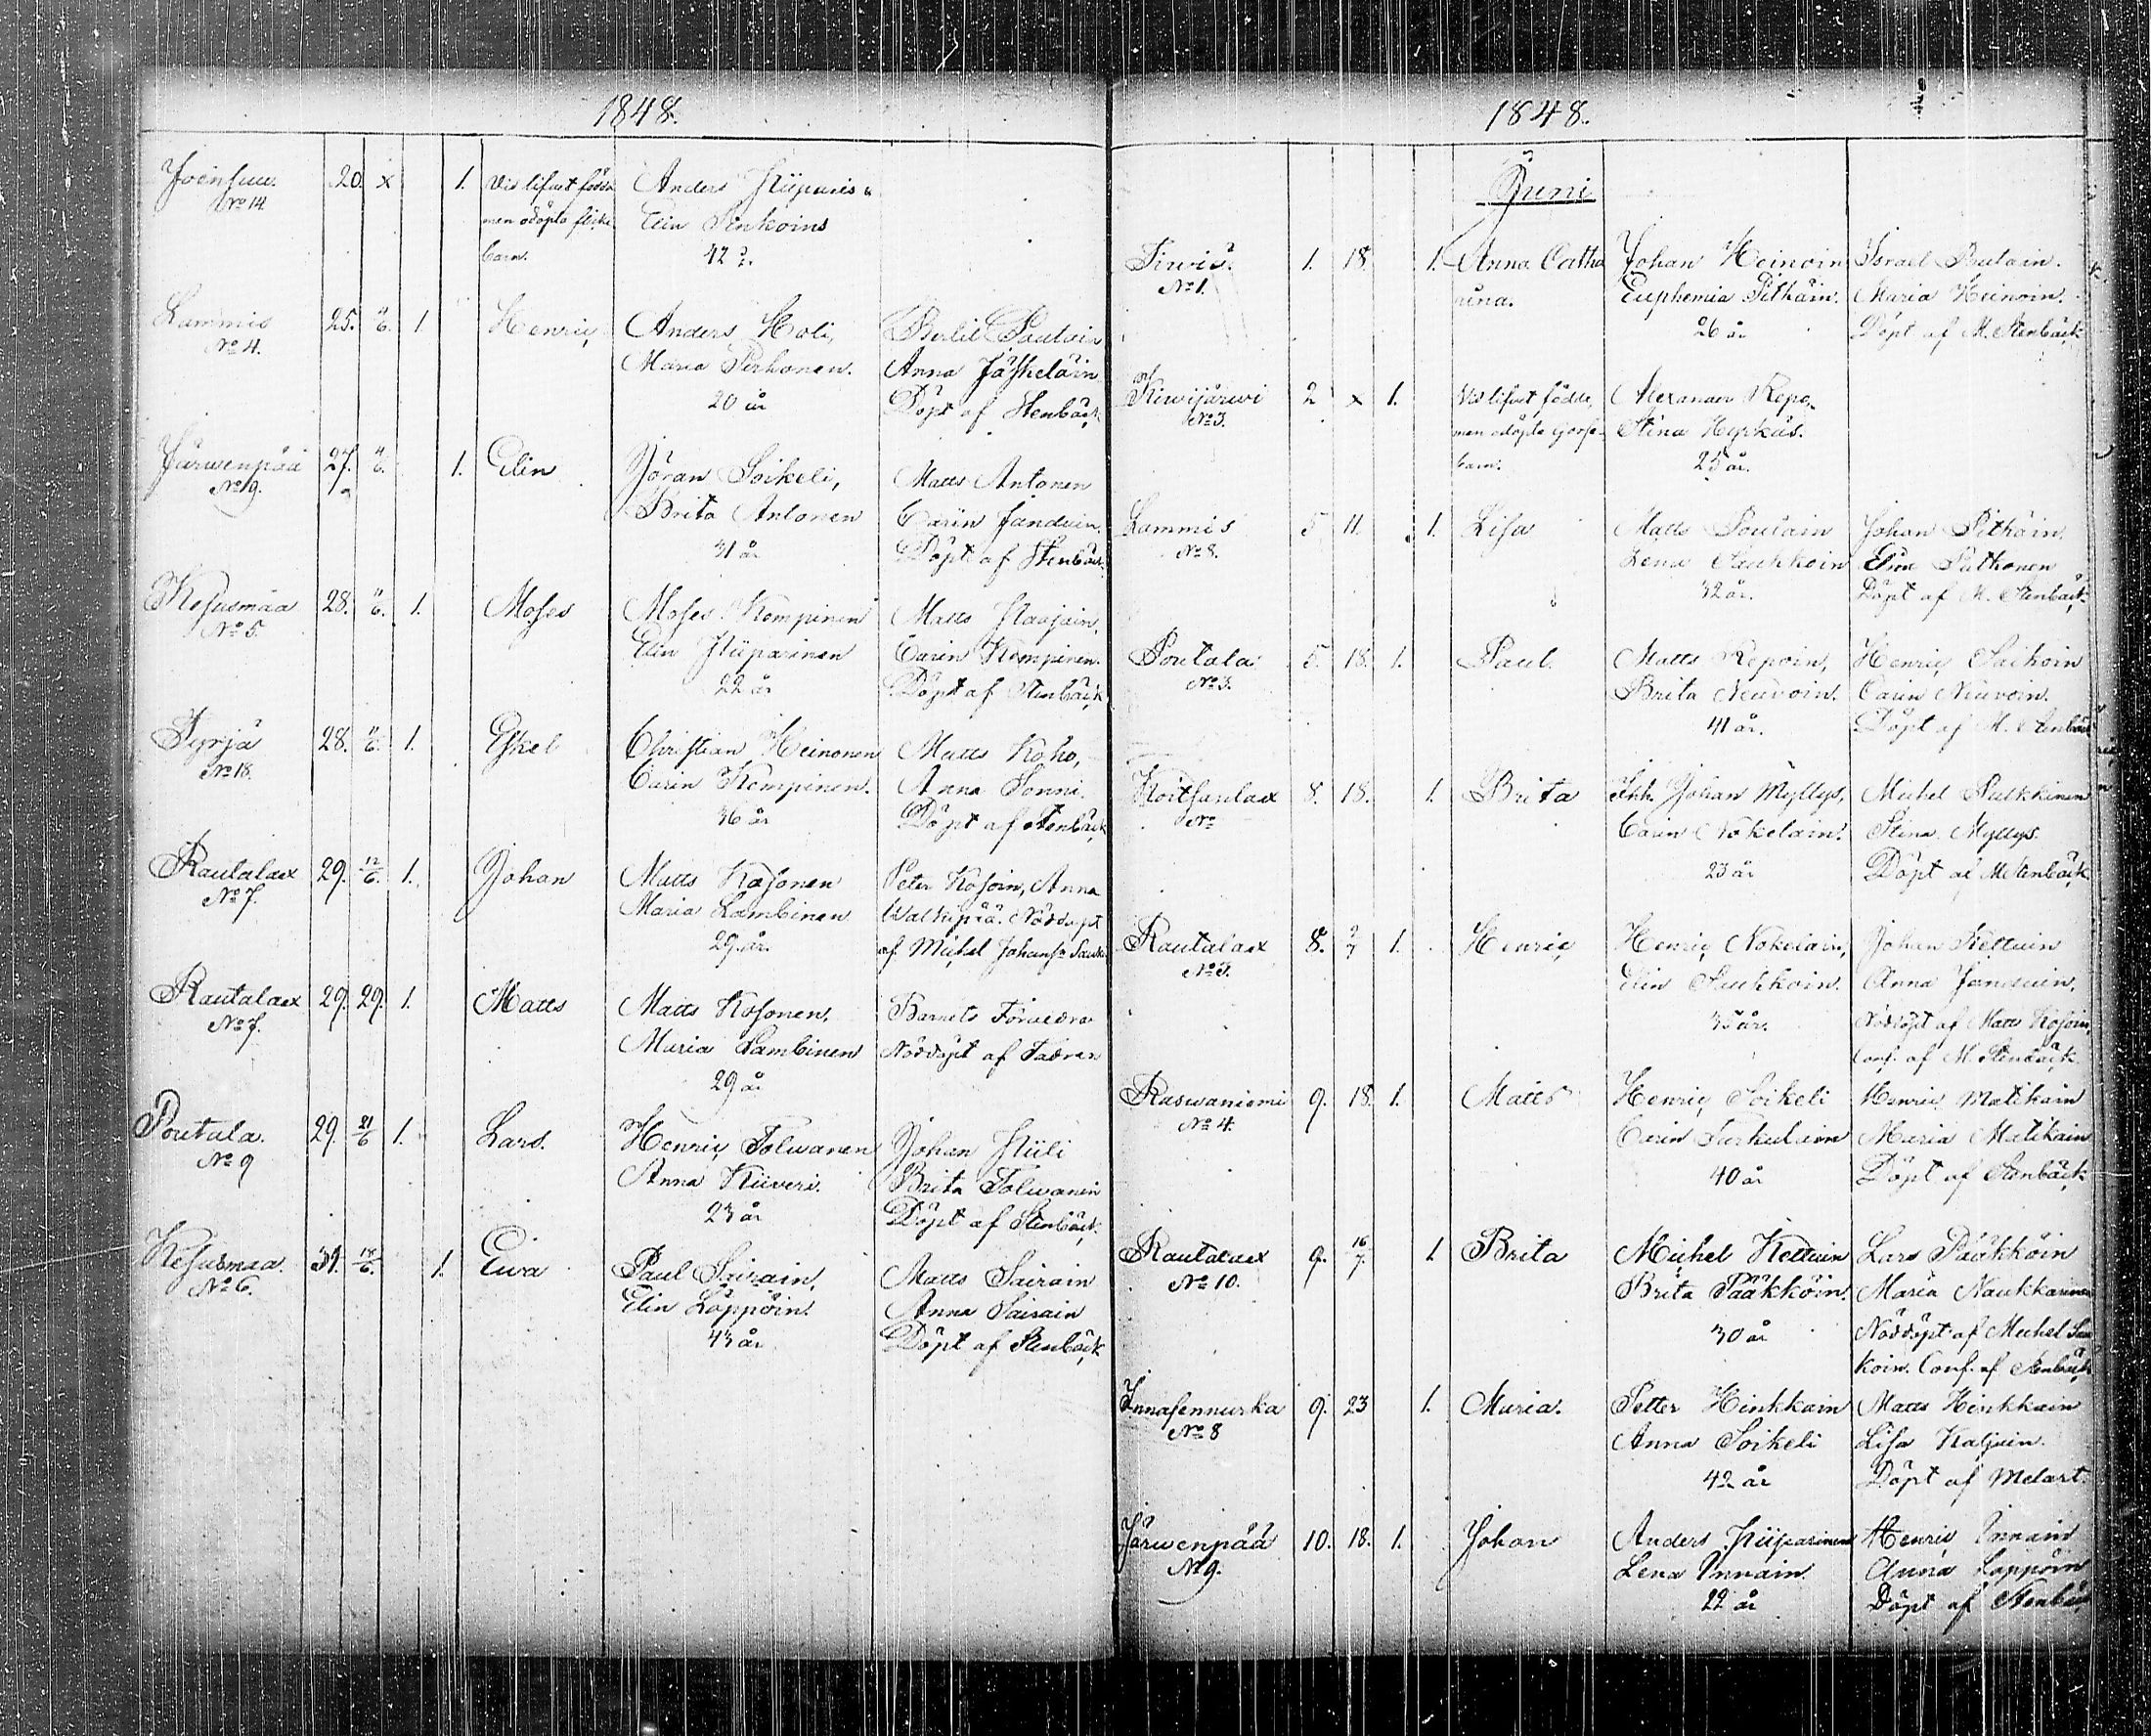 1848.
Joensuu. 20. x 1. Vid lifvet födde Anders Hiiparis o
No 14 men odöpta flicke Elin Sinkoins
barn. 42 år.
Lammis 25. 11/6. 1. Henric, Anders Holi, Bertil Poutain
No 4. Maria Pirhonen. Anna Jäskeläin
20 år Döpt af Stenbäck
Järwenpää 27. 11/6. 1. Elin Jöran Soikeli, Matts Antonen
No 19. Brita Antonen Carin Janduin.
31 år Döpt af Stenbäck
Kesusmaa 28. 11/6. 1. Moses Moses Kempinen Matts Haajain,
No 5. Elin Hiiparinen Carin Kempinen.
22 år Döpt af Stenbäck
Syrjä 28. 11/6. 1. Eskel Christian Heinonen Matts Koho,
No 18. Carin Kempinen. Anna Sonni.
36 år Döpt af Stenbäck
Rautalax 29. 12/6. 1. Johan Matts Kosonen Peter Kosoin, Anna
No 7. Maria Lambinen Walkipää. Nöddöpt
29 år. af Michel Johanss
Rautalax 29. 29. 1. Matts Matts Kosonen, Barnets Föräldrar
No 7. Maria Lambinen Nöddöpt af Fadren
29 år
Poutala. 29. 21/6 1. Lars. Henric Tolwanen Johan Hiili
No 9 Anna Kiiveri. Brita Tolwanen
23 år Döpt af Stenbäck
Kesusmaa. 31. 18/6. 1. Ewa Paul Sairain, Matts Sairain
No 6. Elin Läppöin. Anna Sairain
43 år Döpt af Stenbäck
1848.
Juni
Sirvis. 1. 18. 1. Anna Catha Johan Heinoin Israel Butain.
No 1. rina. Euphemia Pitkäin. Maria Heinoin.
26 år Döpt af M. Stenbäck
Kiwijärwi 2 x 1. Vid lifvet födde, Alexander Repo,
No 3. men odöpta gosse- Stina Hyrkäs.
barn. 25 år.
Lammis 5 11. 1. Lisa Matts Poutain Johan Pitkäin.
No 8. Lena Paukkoin Elin Putkonen
32 år. Döpt af M. Stenbäck
Poutala 5. 18. 1. Paul. Matts Repoin, Henric Saikoin
No 3. Brita Neuvoin. Carin Neuvoin.
41 år. Döpt af M. Stenbäck
Koitsanlax 8. 18. 1. Brita Johan Myllys, Michel Pulkkinen
No Carin Nokelain. Stina Myllys.
23 år Döpt af M Stenbäck
Rautalax 8. 2/7 1. Henric Henric Nokelain, Johan Kettuin
No 3. Elin Paukkoin. Anna Janduin.
35 år. Nöddöpt af Matts Kosoin,
Conf. af M. Stenbäck
Raswaniemi 9. 18. 1. Matts Henric Soikeli Henric Matikain
No 4. Carin Turkulain Maria Matikain
40 år Döpt af Stenbäck
Rautalax 9. 16/7. 1 Brita Michel Kettuin Lars Pääkköin
No 10. Brita Pääkköin. Maria Naukkarinen
30 år Nöddöpt af Michel
koin. Conf. af Stenbäck
Innasennurka 9. 23 1. Maria. Petter Hinkkain Matts Hinkkain
No 8 Anna Soikeli Lisa Kaljuin.
42 år Döpt af Melart.
Järwenpää 10. 18. 1. Johan Anders Hiiparinen Henric Innain
No 9. Lena Innain Anna Lappoin
22 år Döpt af Stenbäck